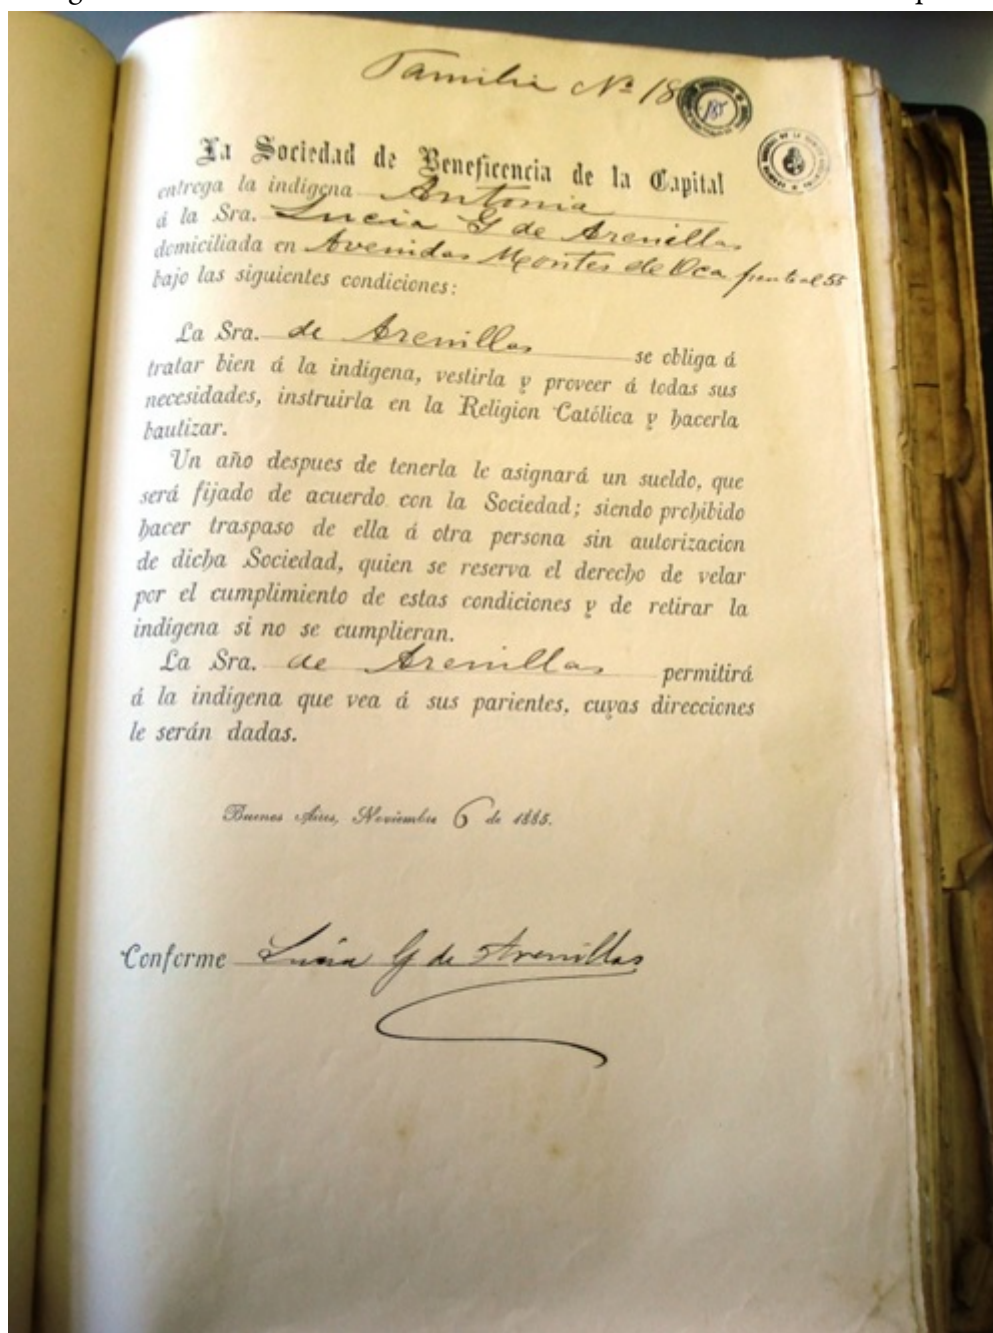 Familia Nº 18
185
La Sociedad de Beneficencia de la Capital
entrega la indígena Antonia
á la Sra. Lucia G de Arenillas
domiciliada en Avenidas Montes de Oca frente al 55
bajo las siguientes condiciones:
La Sra. de Arenillas se obliga á
tratar bien á la indígena, vestirla y proveer á todas sus
necesidades, instruirla en la Religion Católica y hacerla
bautizar.
Un año despues de tenerla le asignará un sueldo, que
será fijado de acuerdo con la Sociedad; siendo prohibido
hacer traspaso de ella á otra persona sin autorizacion
de dicha Sociedad, quien se reserva el derecho de velar
por el cumplimiento de estas condiciones y de retirar la
indígena si no se cumplieran.
La Sra. de Arenillas permitirá
á la indígena que vea á sus parientes, cuyas direcciones
le serán dadas.
Buenos Aires, Noviembre 6 de 1885.
Conforme Lucía G de Arenillas